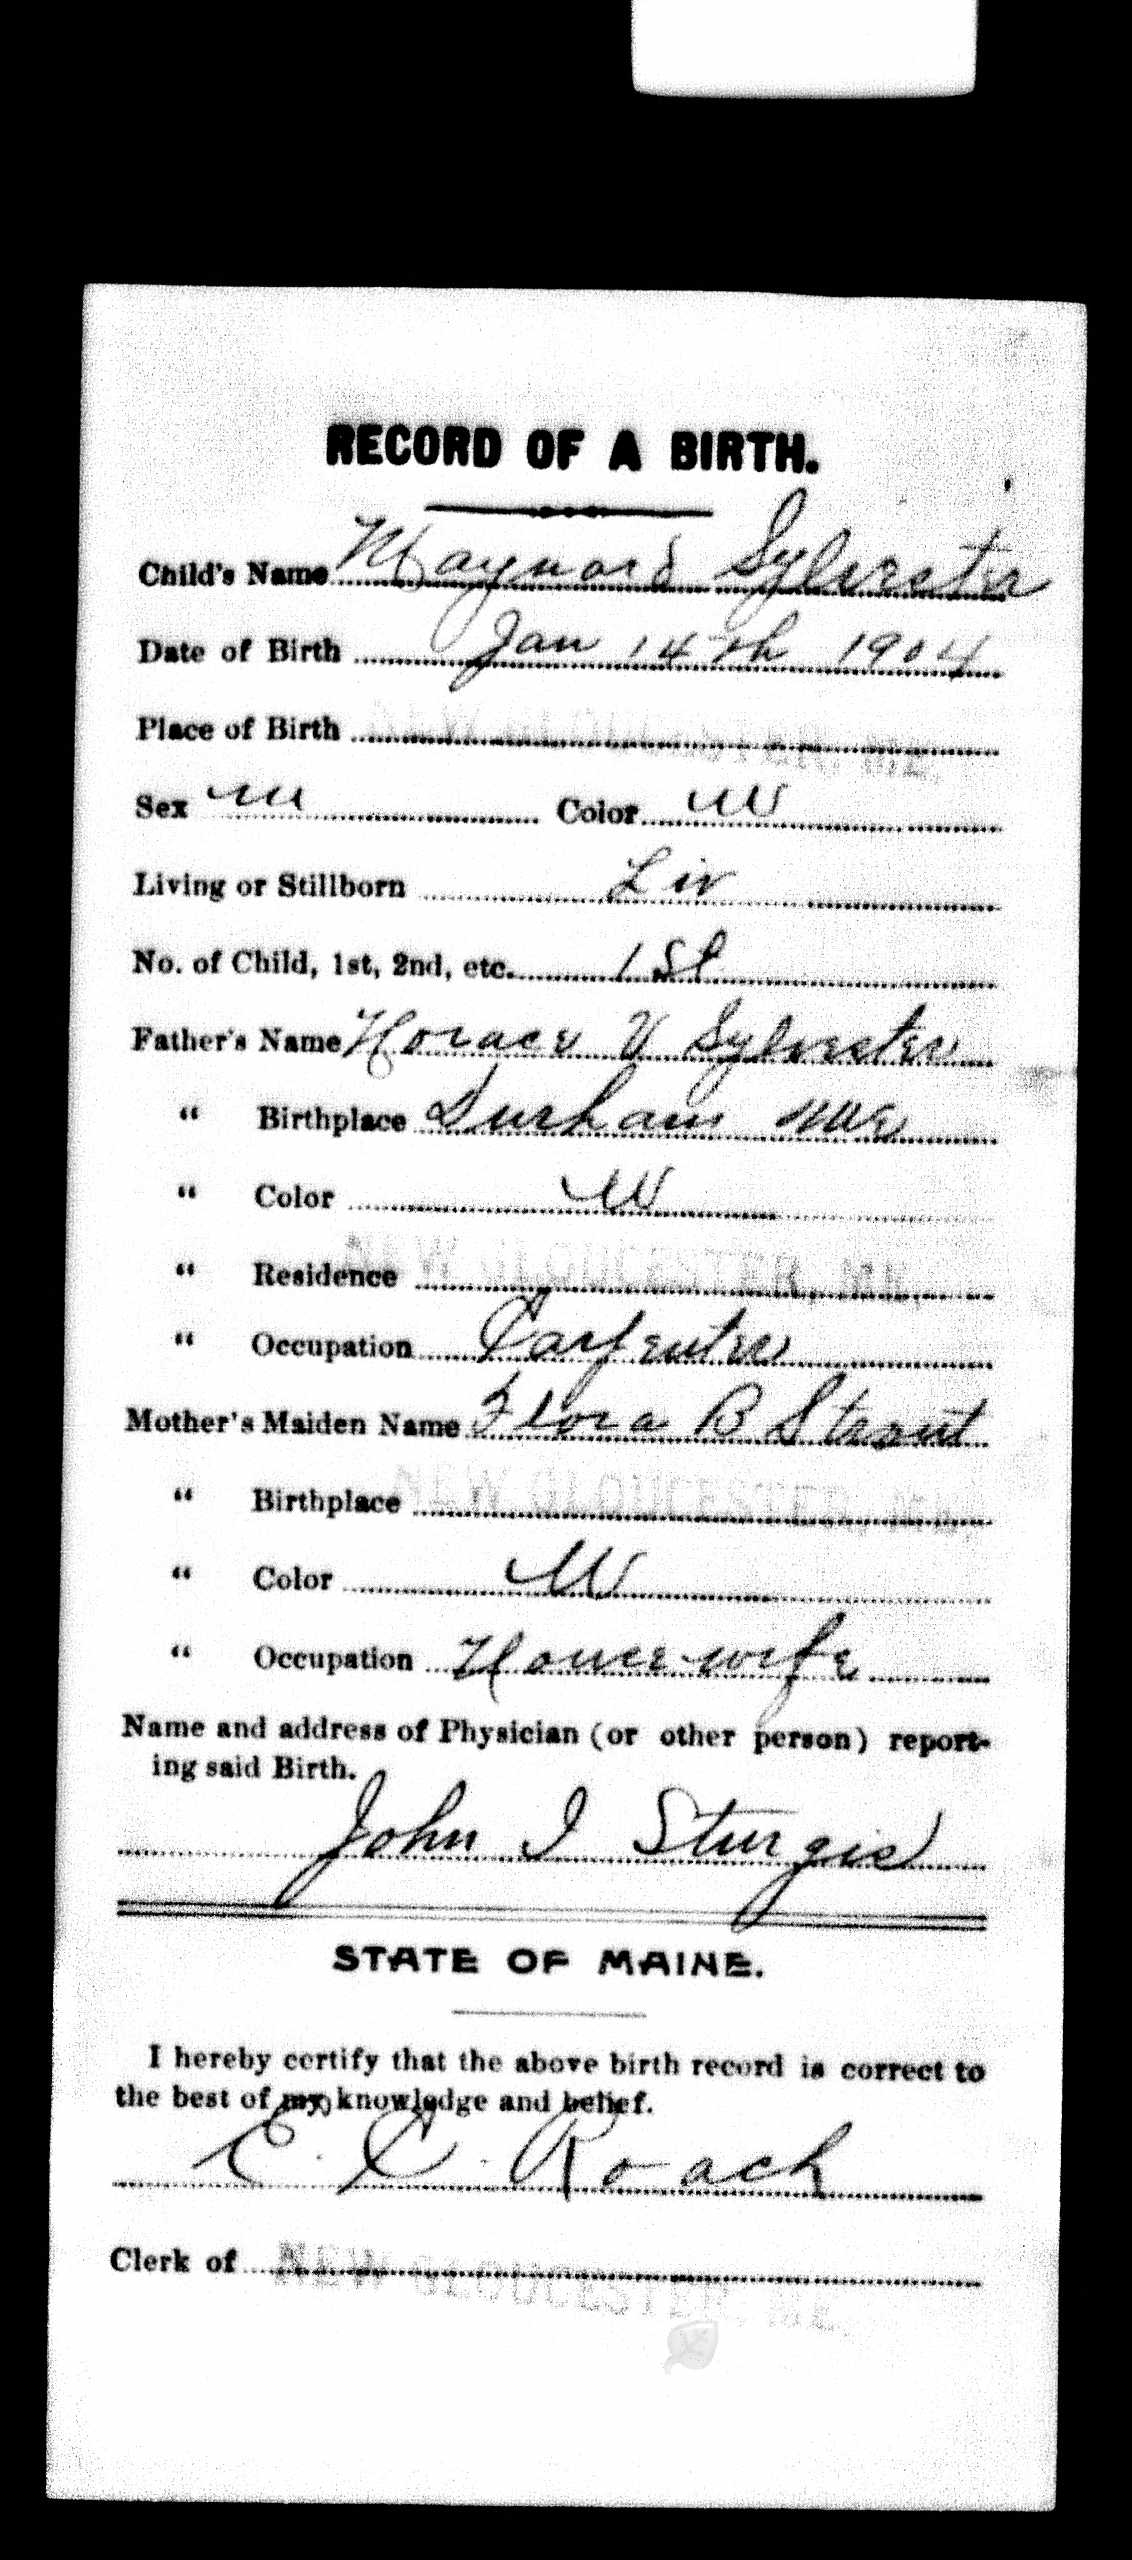 RECORD OF A BIRTH.
Child's Name Maynard Sylvester
Date of Birth Jan 14th 1904
Place of Birth NEW GLOUCESTER, ME.
Sex M Color W
Living or Stillborn Liv
No. of Child, 1st, 2nd, etc. 1st
Father's Name Horace V Sylvester
" Birthplace Durham Me
" Color W
" Residence NEW GLOUCESTER, ME.
" Occupation Carpenter
Mother's Maiden Name Flora B
" Birthplace NEW GLOUCESTER, ME.
" Color W
" Occupation Housewife
Name and address of Physician (or other person) report-
ing said Birth.
John I Sturgis
STATE OF MAINE.
I hereby certify that the above birth record is correct to
the best of my knowledge and belief.
E. C. Roach
Clerk of NEW GLOUCESTER, ME.